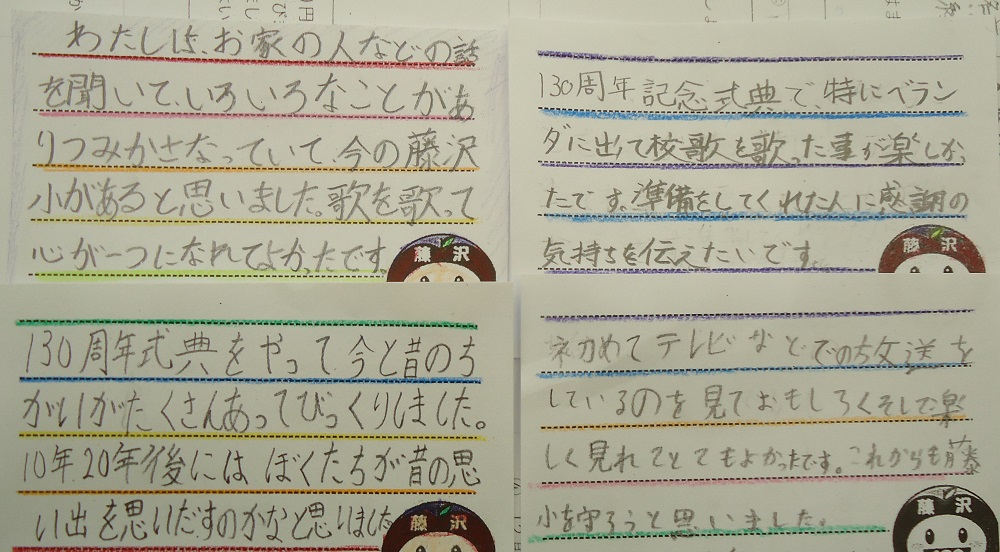 わたしは、お家の人などの話
を聞いて、いろいろなことがあ
りつみかさなっていて、今の藤沢
小があると思いました。歌を歌って
心が一つになれてよかったです。
藤沢
130周年記念式典で、特にベラン
ダに出て校歌を歌った事が楽しかっ
たです。準備をしてくれた人に感謝の
気持ちを伝えたいです。
藤沢
130周年式典をやって今と昔のち
がいがたくさんあってびっくりしました。
10年20年後にはぼくたちが昔の思
い出を思いだすのかなと思いました
藤沢
初めてテレビなどでの放送を
しているのを見ておもしろくそして楽
しく見れてとてもよかったです。これからも藤
小を守ろうと思いました。
藤沢